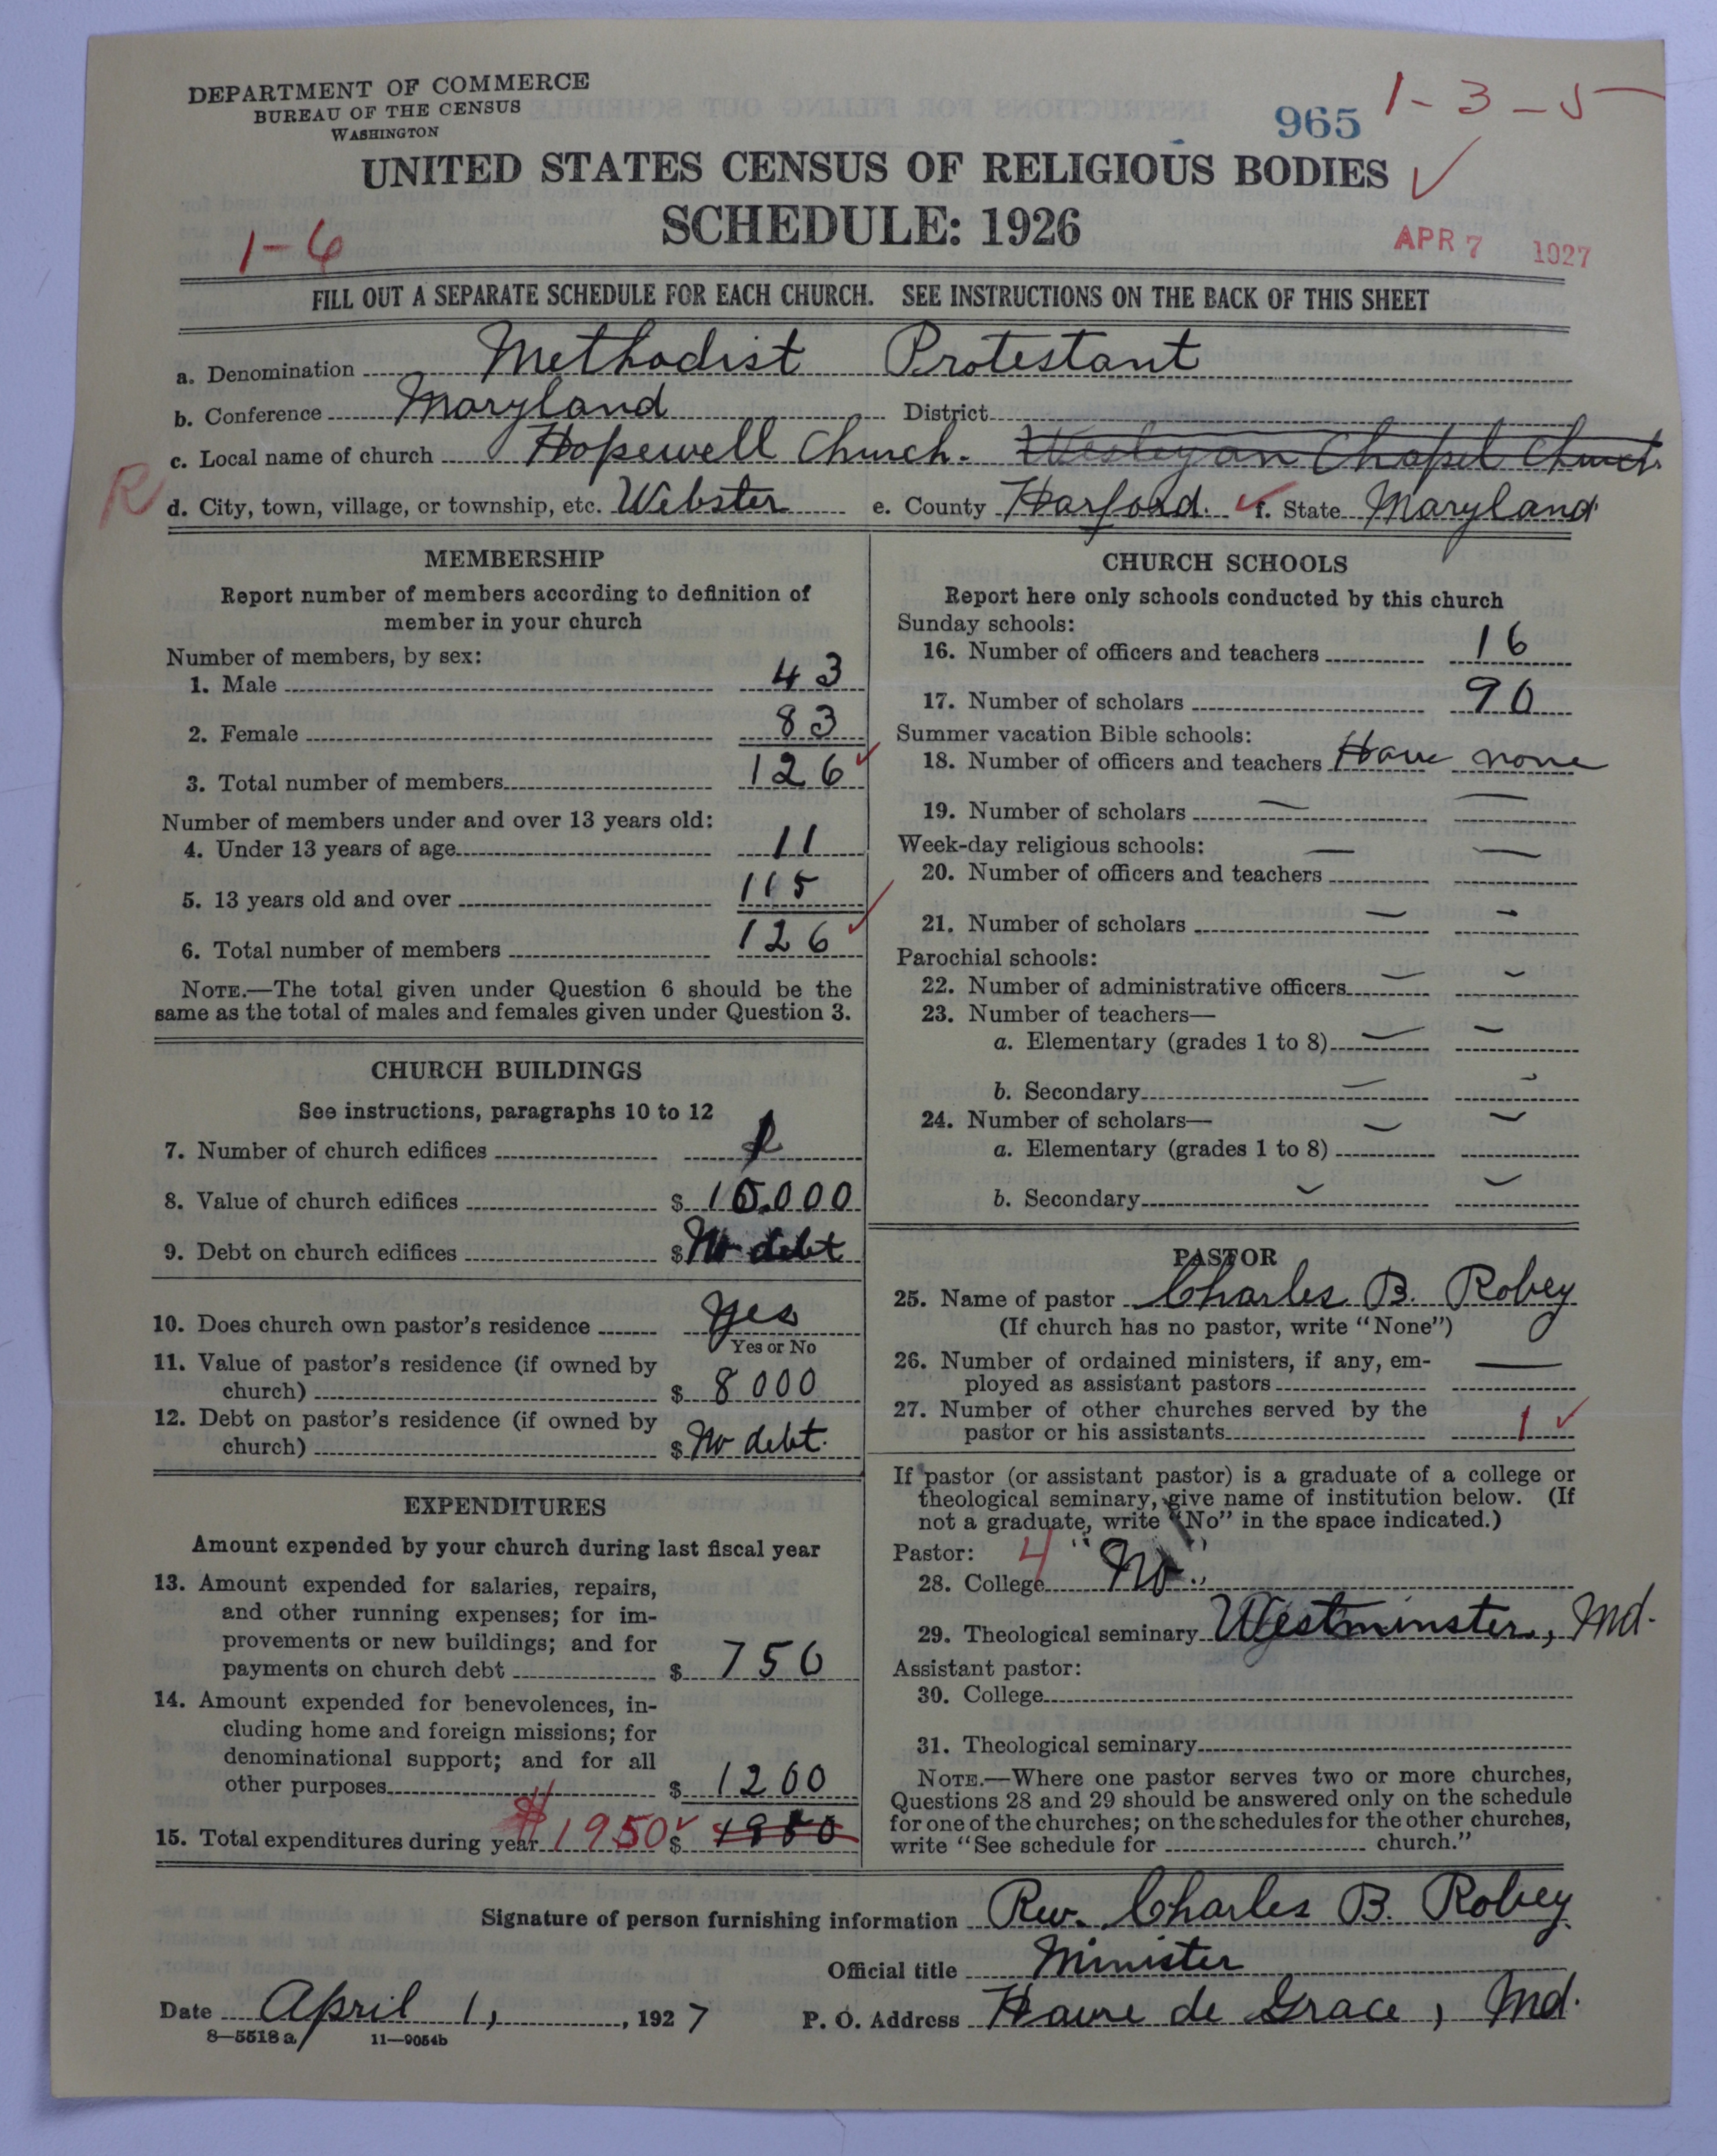 DEPARTMENT OF COMMERCE
BUREAU OF THE CENSUS
WASHINGTON
965 1-3-5
UNITED STATES CENSUS OF RELIGIOUS BODIES
SCHEDULE: 1926
1-6
APR 7 1927
FILL OUT A SEPARATE SCHEDULE FOR EACH CHURCH. SEE INSTRUCTIONS ON THE BACK OF THIS SHEET
a. Denomination Methodist Protestant
b. Conference Maryland District
c. Local name of church Hopewell Church. Wesleyan Chapel Church.
R d. City, town, village, or township, etc. Webster e. County Harford. f. State Maryland
MEMBERSHIP
Report number of members according to definition of
member in your church
Number of members, by sex:
1. Male 43
2. Female 83
3. Total number of members 126
Number of members under and over 13 years old:
4. Under 13 years of age 11
5. 13 years old and over 115
6. Total number of members 126
NOTE.—The total given under Question 6 should be the
same as the total of males and females given under Question 3.
CHURCH BUILDINGS
See instructions, paragraphs 10 to 12
7. Number of church edifices 1
8. Value of church edifices $
9. Debt on church edifices $ No debt
10. Does church own pastor's residence Yes
Yes or No
11. Value of pastor's residence (if owned by
church) $ 8000
12. Debt on pastor's residence (if owned by
church) $ No debt.
EXPENDITURES
Amount expended by your church during last fiscal year
13. Amount expended for salaries, repairs,
and other running expenses; for im-
provements or new buildings; and for
payments on church debt $ 750
14. Amount expended for benevolences, in-
cluding home and foreign missions; for
denominational support; and for all
other purposes $ 1200
15. Total expenditures during year $1950 $
CHURCH SCHOOLS
Report here only schools conducted by this church
Sunday schools:
16. Number of officers and teachers 16
17. Number of scholars 90
Summer vacation Bible schools:
18. Number of officers and teachers Have none
19. Number of scholars — —
Week-day religious schools: — —
20. Number of officers and teachers
21. Number of scholars — —
Parochial schools:
22. Number of administrative officers — —
23. Number of teachers—
a. Elementary (grades 1 to 8) — —
b. Secondary — —
24. Number of scholars—
a. Elementary (grades 1 to 8) — —
b. Secondary — —
PASTOR
25. Name of pastor Charles B. Robey
(If church has no pastor, write "None")
26. Number of ordained ministers, if any, em-
ployed as assistant pastors —
27. Number of other churches served by the
pastor or his assistants 1
If pastor (or assistant pastor) is a graduate of a college or
theological seminary, give name of institution below. (If
not a graduate, write "No" in the space indicated.)
Pastor: 4
28. College "No."
29. Theological seminary Westminster, Md.
Assistant pastor:
30. College
31. Theological seminary
NOTE.—Where one pastor serves two or more churches,
Questions 28 and 29 should be answered only on the schedule
for one of the churches; on the schedules for the other churches,
write "See schedule for church."
Signature of person furnishing information Rev. Charles B. Robey
Official title Minister
Date April 1, , 1927 P. O. Address Havre de Grace, Md.
8—5518 a 11—9054b